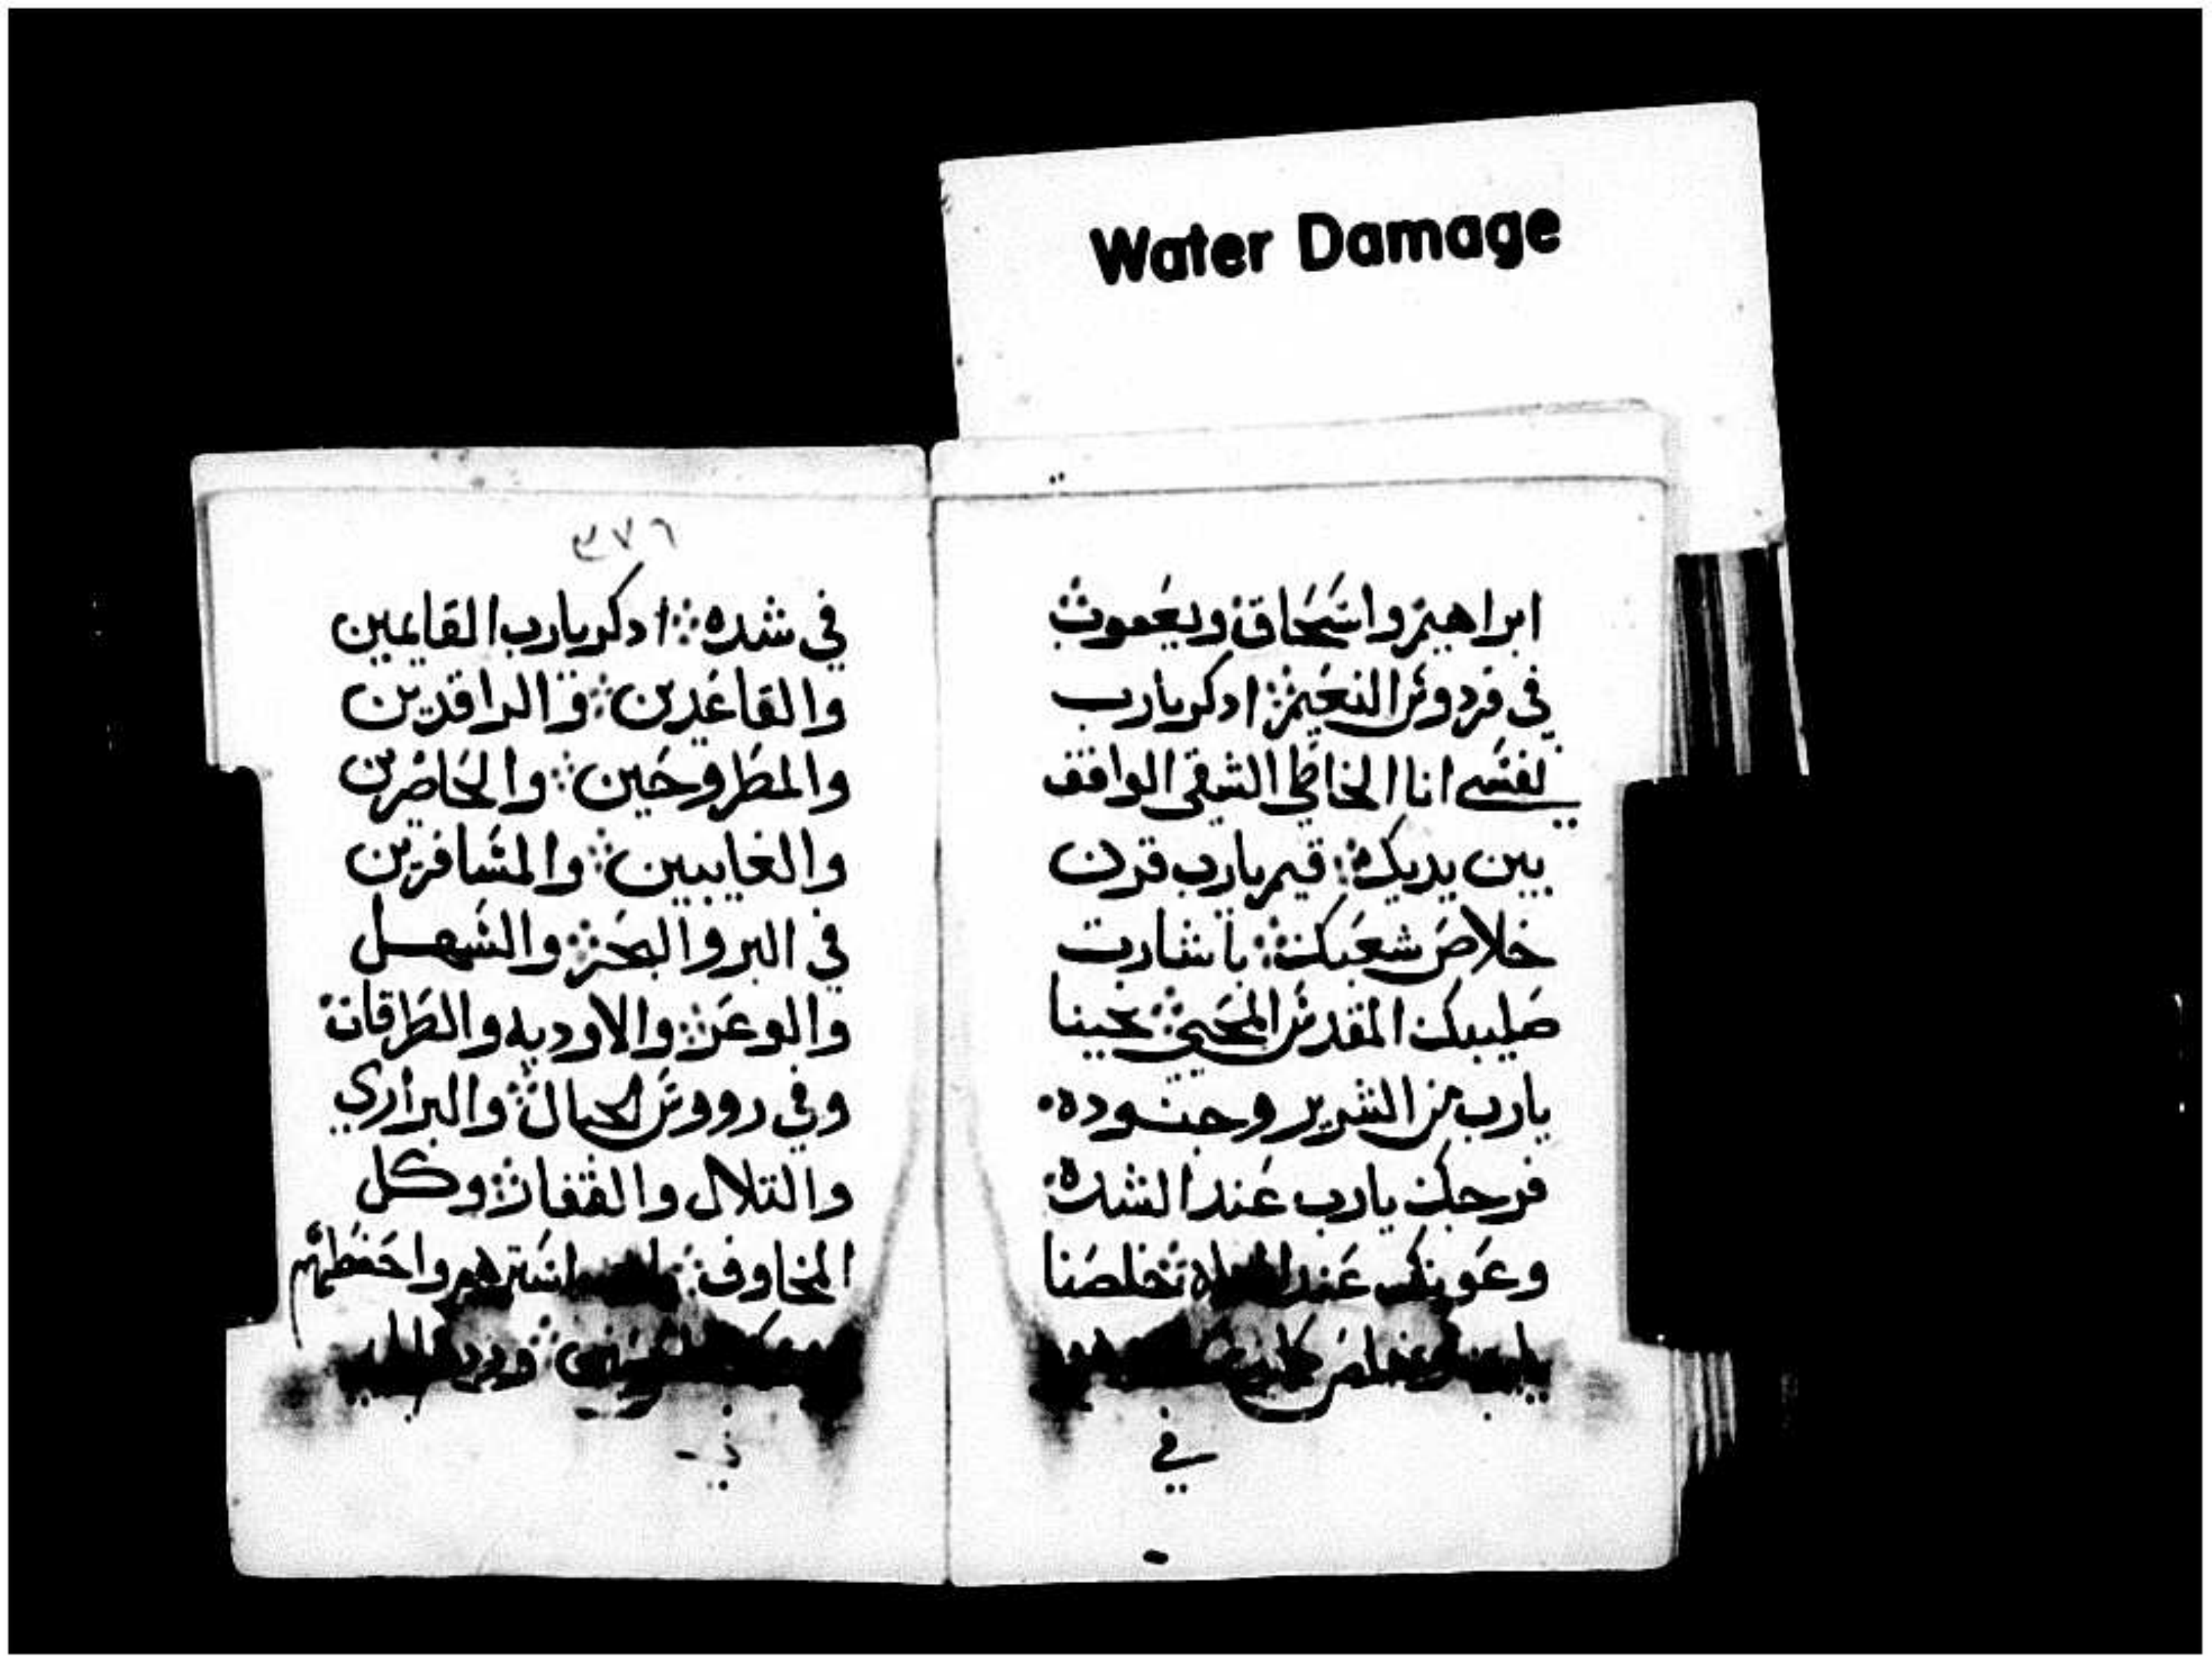 Water Damage
ابراهيم واسحاق ويعقوب
في فردوس النعيم ادكر يارب
لفنسي انا الخاطي الشقي الواقف
بين يديك قيم يارب قرن
خلاص شعبك باشارت
صليبك المقدس المحيي نجينا
يارب من الشرير وجنوده
فرجك يارب عند الشده
وعونك عند تخلصنا
في
٣٧٦
في شده ادكر يارب القايمين
والقاعدين والراقدين
والمطروحين والحاضرين
والغايبين والمسافرين
في البر والبحر والسهل
والوعر والاوديه والطرقات
وفي رووس الجبال والبراري
والتلال والقفار وكل
المخاوف استرهم واحفظهم